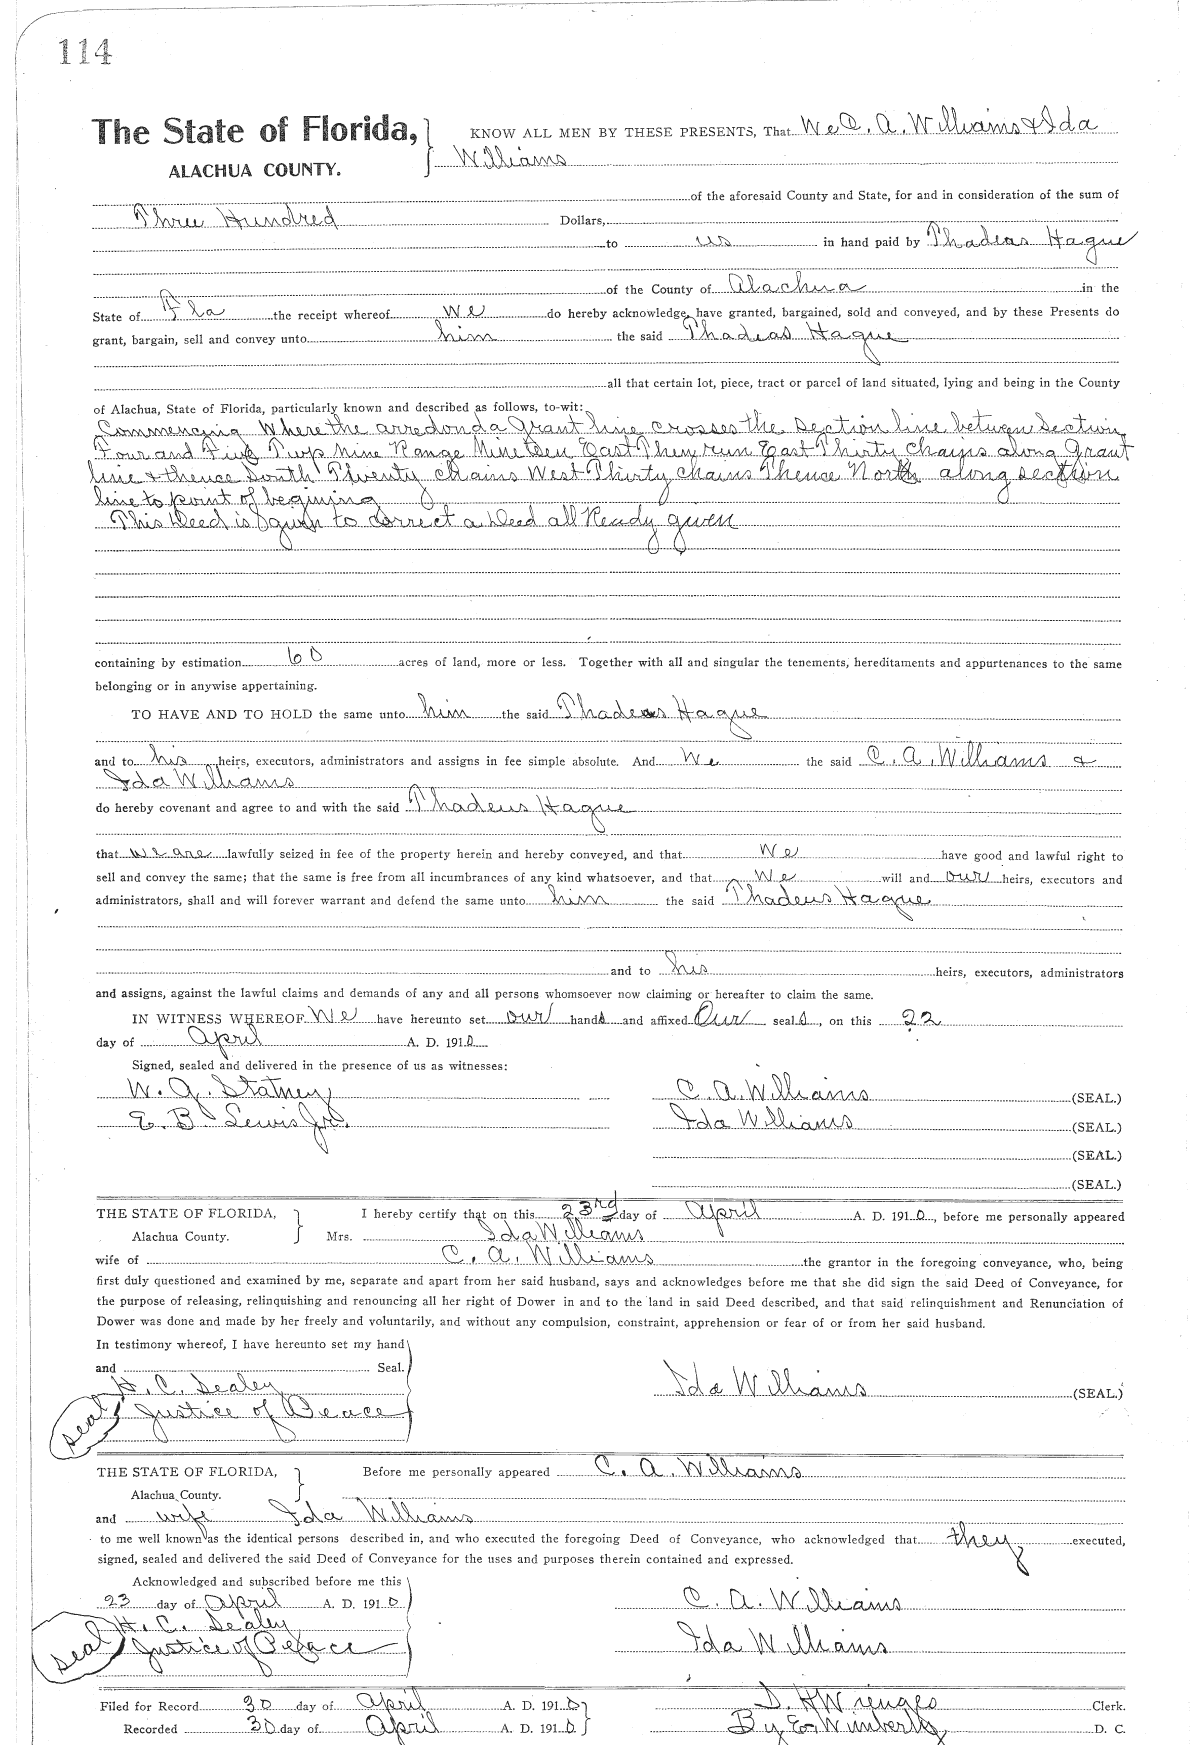 114
The State of Florida, KNOW ALL MEN BY THESE PRESENTS, That We C. A. Williams & Ida
ALACHUA COUNTY. Williams
of the aforesaid County and State, for and in consideration of the sum of
Three Hundred Dollars,
to us in hand paid by Thadeas Hague
of the County of Alachua in the
State of Fla the receipt whereof We do hereby acknowledge, have granted, bargained, sold and conveyed, and by these Presents do
grant, bargain, sell and convey unto him the said Thadeas Hague
all that certain lot, piece, tract or parcel of land situated, lying and being in the County
of Alachua, State of Florida, particularly known and described as follows, to-wit:
Commencing Where the arredonda Grant line crosses the Section line between Section
Four and Five Twp Nine Range Nine Teen East Then run East Thirty chains along Grant
line & thence South Twenty chains West Thirty chains Thence North along section
line to point of begining
This Deed is given to correct a Deed all Ready given
containing by estimation 60 acres of land, more or less. Together with all and singular the tenements, hereditaments and appurtenances to the same
belonging or in anywise appertaining.
TO HAVE AND TO HOLD the same unto him the said Thadeas Hague
and to his heirs, executors, administrators and assigns in fee simple absolute. And We the said C. A. Williams &
Ida Williams
do hereby covenant and agree to and with the said Thadeus Hague
that we are lawfully seized in fee of the property herein and hereby conveyed, and that We have good and lawful right to
sell and convey the same; that the same is free from all incumbrances of any kind whatsoever, and that We will and our heirs, executors and
administrators, shall and will forever warrant and defend the same unto him the said Thadeus Hague
and to his heirs, executors, administrators
and assigns, against the lawful claims and demands of any and all persons whomsoever now claiming or hereafter to claim the same.
IN WITNESS WHEREOF We have hereunto set our hands and affixed Our seals, on this 22
day of April A. D. 1910
Signed, sealed and delivered in the presence of us as witnesses:
W. G. C. A. Williams (SEAL.)
E. B. Lewis Jr. Ida Williams (SEAL.)
(SEAL.)
(SEAL.)
THE STATE OF FLORIDA, I hereby certify that on this 23rd day of April A. D. 1910, before me personally appeared
Alachua County. Mrs. Ida Williams
wife of C. A. Williams the grantor in the foregoing conveyance, who, being
first duly questioned and examined by me, separate and apart from her said husband, says and acknowledges before me that she did sign the said Deed of Conveyance, for
the purpose of releasing, relinquishing and renouncing all her right of Dower in and to the land in said Deed described, and that said relinquishment and Renunciation of
Dower was done and made by her freely and voluntarily, and without any compulsion, constraint, apprehension or fear of or from her said husband.
In testimony whereof, I have hereunto set my hand
and Seal.
H. C. Sealey Ida Williams (SEAL.)
seal Justice of Peace
THE STATE OF FLORIDA, Before me personally appeared C. A. Williams
Alachua County.
and wife Ida Williams
to me well known as the identical persons described in, and who executed the foregoing Deed of Conveyance, who acknowledged that they executed,
signed, sealed and delivered the said Deed of Conveyance for the uses and purposes therein contained and expressed.
Acknowledged and subscribed before me this
23 day of April A. D. 1910 C. A. Williams
H. C. Sealey
seal Justice of Peace Ida Williams
Filed for Record 30 day of April A. D. 1910 S. H Wienges Clerk.
Recorded 30 day of April A. D. 1910. By E Wimberly D. C.